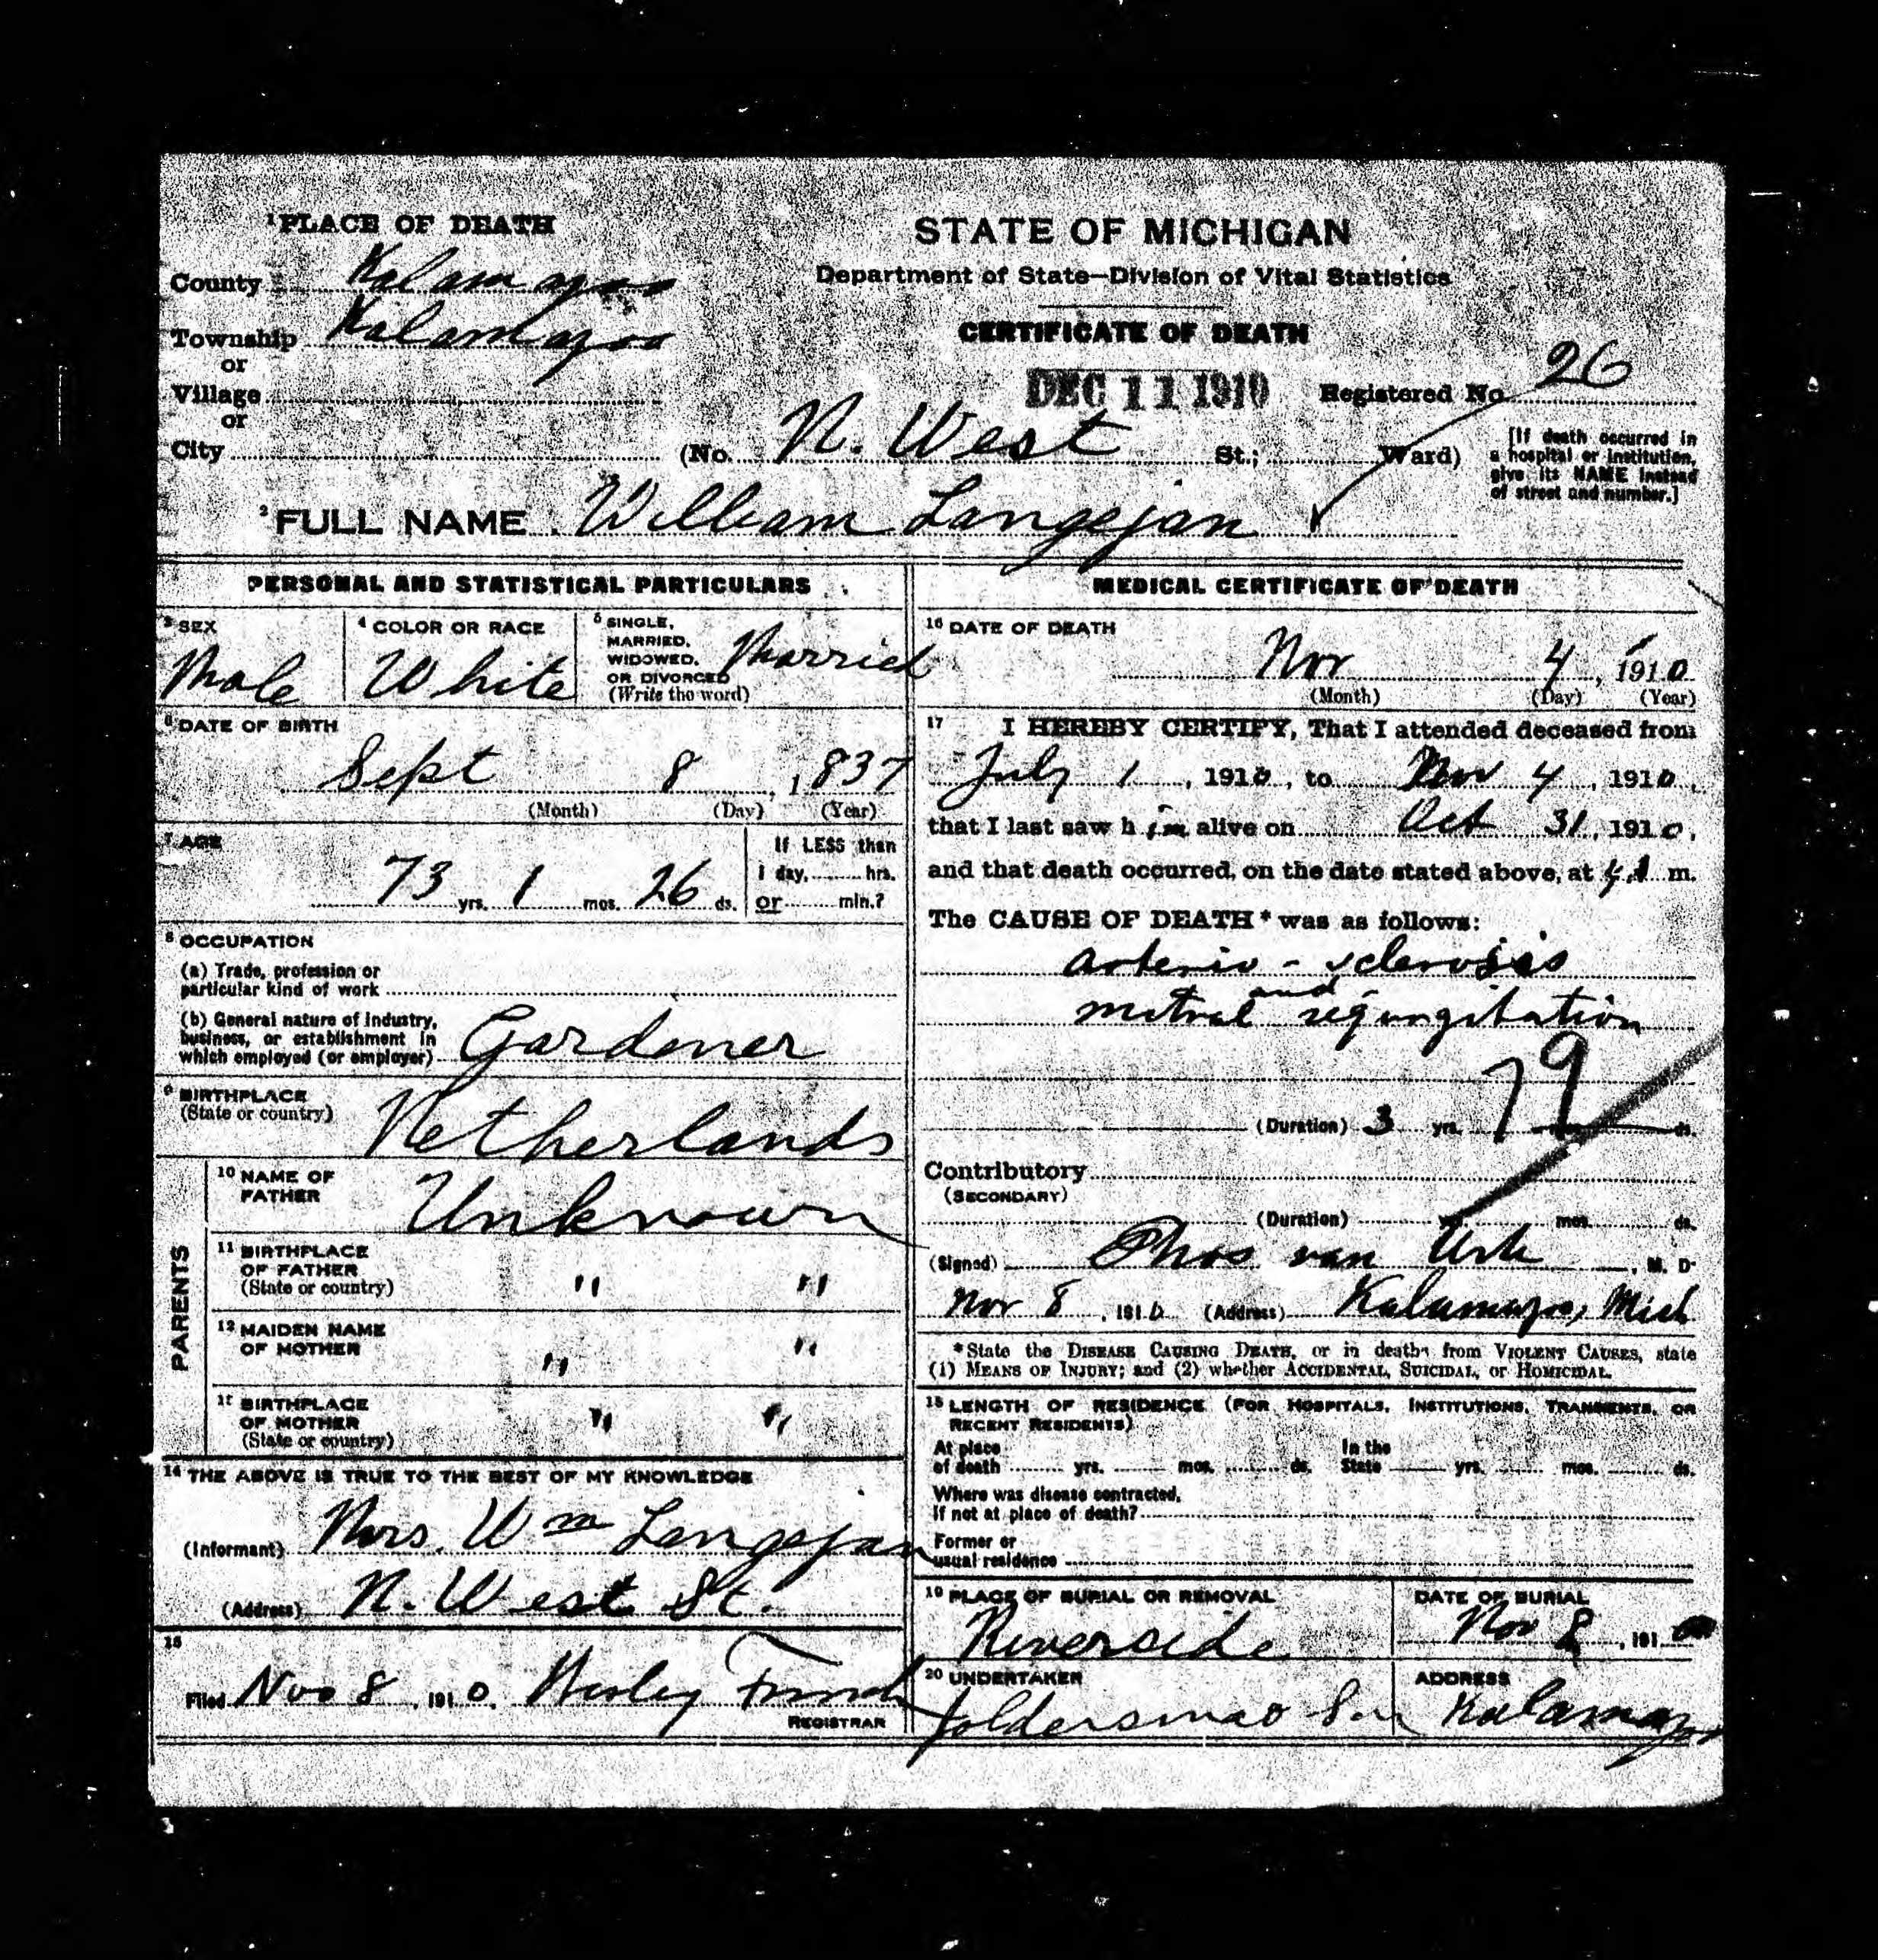 1 PLACE OF DEATH
County Kalamazoo
Township Kalamazoo
or
Village
or
City
STATE OF MICHIGAN
Department of State—Division of Vital Statistics
CERTIFICATE OF DEATH
DEC 11 1910
Registered No. 26
(No. N. West St.; Ward)
[If death occurred in
a hospital or institution,
give its NAME instead
of street and number.]
2 FULL NAME William Langejan
PERSONAL AND STATISTICAL PARTICULARS
3 SEX
Male
4 COLOR OR RACE
White
5 SINGLE,
MARRIED,
WIDOWED,
OR DIVORCED
(Write the word)
Married
6 DATE OF BIRTH
Sept 8, 1837
(Month) (Day) (Year)
7 AGE
73 yrs. 1 mos. 26 ds.
If LESS than
1 day, hrs.
or min.?
8 OCCUPATION
(a) Trade, profession or
particular kind of work
(b) General nature of industry,
business, or establishment in
which employed (or employer) Gardener
9 BIRTHPLACE
(State or country) Netherlands
PARENTS
10 NAME OF
FATHER Unknown
11 BIRTHPLACE
OF FATHER
(State or country) " "
12 MAIDEN NAME
OF MOTHER " "
13 BIRTHPLACE
OF MOTHER
(State or country) " "
14 THE ABOVE IS TRUE TO THE BEST OF MY KNOWLEDGE
(Informant) Mrs. Wm Langejan
(Address) N. West St.
15
Filed Nov 8, 1910,
REGISTRAR
MEDICAL CERTIFICATE OF DEATH
16 DATE OF DEATH
Nov 4, 1910
(Month) (Day) (Year)
17 I HEREBY CERTIFY, That I attended deceased from
July 1, 1910, to Nov 4, 1910,
that I last saw him alive on Oct 31, 1910,
and that death occurred, on the date stated above, at m.
The CAUSE OF DEATH* was as follows:
arterio-sclerosis
and
mitral regurgitation
79
(Duration) 3 yrs. ds.
Contributory
(SECONDARY)
(Duration) yrs. mos. ds.
(Signed) van Urk, M. D.
Nov 8, 1910 (Address) Kalamazoo, Mich
*State the DISEASE CAUSING DEATH, or in deaths from VIOLENT CAUSES, state
(1) MEANS OF INJURY; and (2) whether ACCIDENTAL, SUICIDAL, or HOMICIDAL.
18 LENGTH OF RESIDENCE (FOR HOSPITALS, INSTITUTIONS, TRANSIENTS, OR
RECENT RESIDENTS)
At place
of death yrs. mos. ds.
In the
State yrs. mos. ds.
Where was disease contracted,
If not at place of death?
Former or
usual residence
19 PLACE OF BURIAL OR REMOVAL
Riverside
DATE OF BURIAL
Nov 8, 191
20 UNDERTAKER
ADDRESS
Kalamazoo